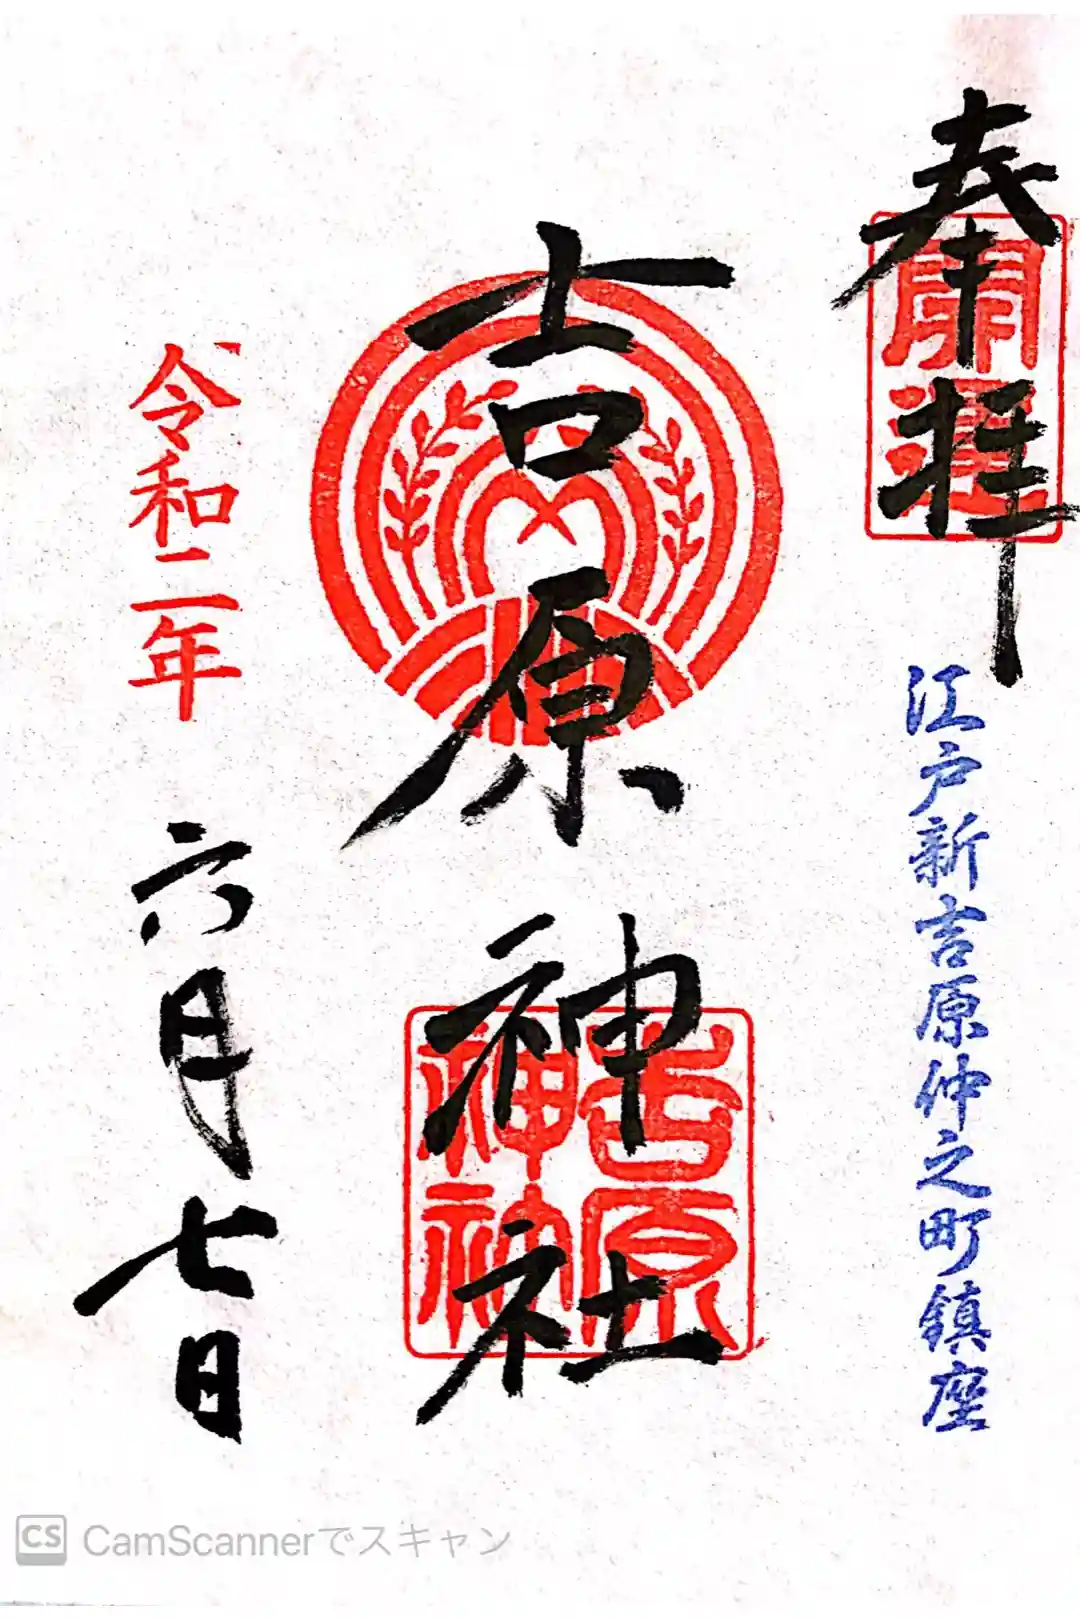 奉拝
開運
江戸新吉原仲之町鎮座
吉原神社
吉原
神社
令和二年
六月七日
CS CamScannerでスキャン